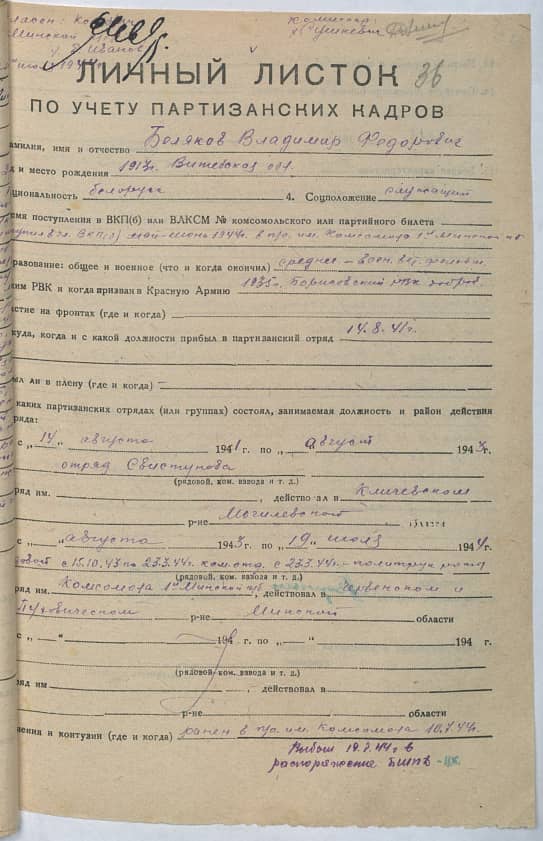 Минской
Иванов
1944 г.
Комиссар
ЛИЧНЫЙ ЛИСТОК 36
ПО УЧЕТУ ПАРТИЗАНСКИХ КАДРОВ
амилия, имя и отчество Беляков Владимир Федорович
д и место рождения 1913 г. Витебская обл.
циональность белорус 4. Соцположение служащий
емя поступления в ВКП(б) или ВЛКСМ № комсомольского или партийного билета
ВКП(б) май-июнь 1944 г. в п/о. им. Комсомола 1й Минской п/б
разование: общее и военное (что и когда окончил) среднее – воен. вет.
ким РВК и когда призван в Красную Армию 1935 г. Борисовский РВК добров.
стие на фронтах (где и когда)
куда, когда и с какой должности прибыл в партизанский отряд 14.8.41 г.
ыл ли в плену (где и когда)
каких партизанских отрядах (или группах) состоял, занимаемая должность и район действия
ряда:
с „14“ августа 1941 г. по „ август 1943 г.
отряд Свистунова
(рядовой, ком. взвода и т. д.)
ряд им. , действовал в Кличевском
р-не Могилевской области
с „ “ августа 1943 г. по „19“ июля 1944 г.
довой с 15.10.43 по 23.3.44 г. ком. отд. с 23.3.44 г. – политрук роты
(рядовой, ком. взвода и т. д.)
ряд им. Комсомола 1й Минской п/б , действовал в Червенском и
Пуховическом р-не Минской области
с „ “ 194 г. по „ “ 194 г.
(рядовой, ком. взвода и т. д.)
ряд им , действовал в
р-не области
нения и контузии (где и когда) ранен в п/о. им. Комсомола 10.7.44 г.
Выбыл 19.7.44 г. в
распоряжение БШПД